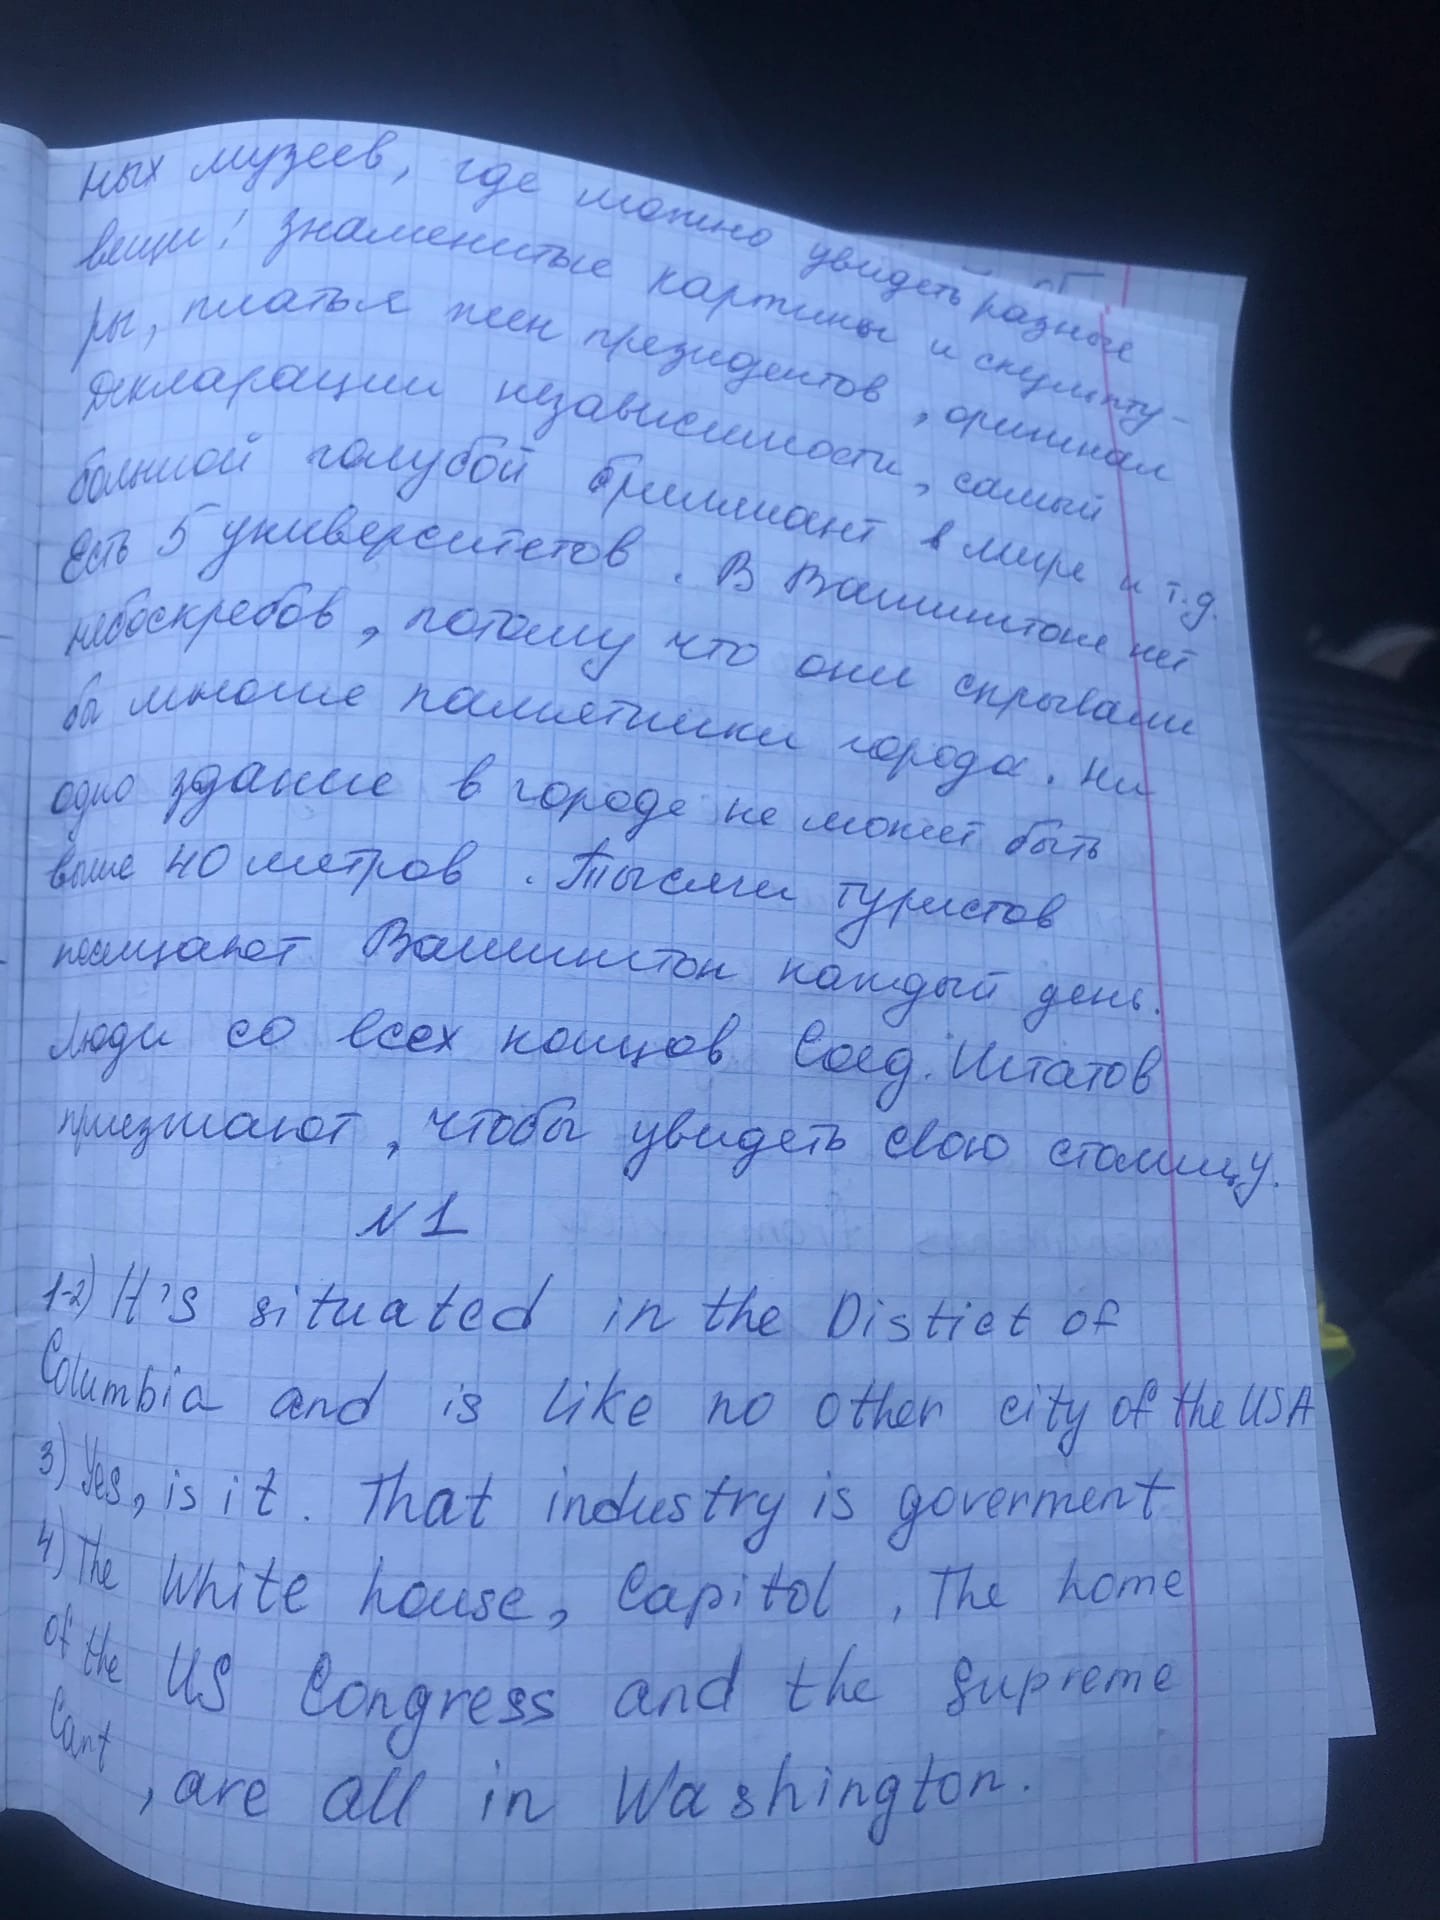 ных музеев, где можно увидеть разные
вещи! знаменитые картины и скульпту-
ры, платья жен президентов, оригинал
Декларации независимости, самый
большой голубой бриллиант в мире и т.д.
Есть 5 университетов. В Вашингтоне нет
небоскребов, потому что они скрывали
бы многие памятники города. Ни
одно здание в городе не может быть
выше 40 метров. Тысячи туристов
посещают Вашингтон каждый день.
Люди со всех концов Соед. Штатов
приезжают, чтобы увидеть свою столицу.
N 1
1-2) It's situated in the Distict of
Columbia and is like no other city of the USA
3) Yes, is it. That industry is goverment
4) The White house, Capitol, The home
of the US Congress and the Supreme
Cant, are all in Washington.